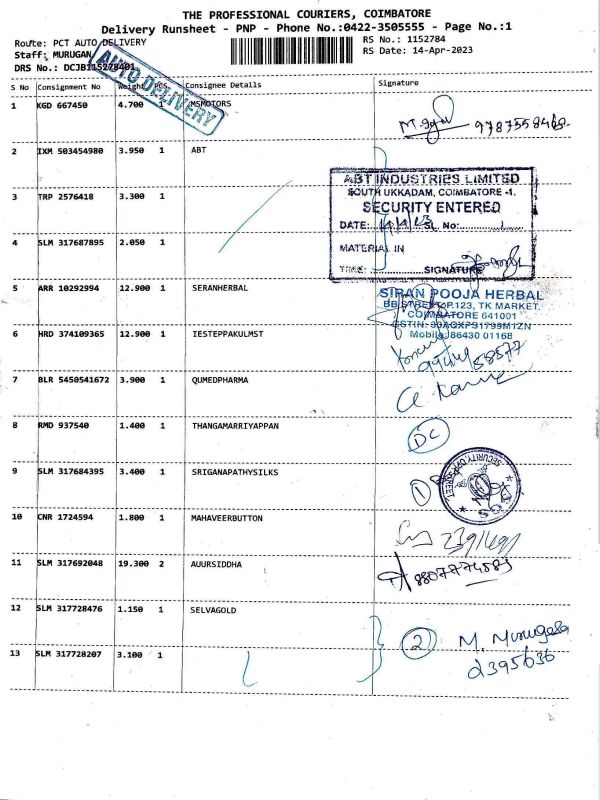 THE PROFESSIONAL COURIERS, COIMBATORE
Delivery Runsheet - PNP - Phone No.:0422-3505555 - Page No.:1
Route: PCT AUTO DELIVERY
RS No.: 1152784
Staff: MURUGAN
RS Date: 14-Apr-2023
DRS No.: DCJB115278401
AUTO DELIVERY
S No Consignment No Weight PCS Consignee Details Signature
1 KGD 667450 4.700 1 MSMOTORS
2 IXM 503454980 3.950 1 ABT
ABT INDUSTRIES LIMITED
SOUTH UKKADAM, COIMBATORE -1.
SECURITY ENTERED
3 TRP 2576418 3.300 1
DATE: 14/4/23 SL No:
4 SLM 317687895 2.050 1
MATERIAL IN
TIME: SIGNATURE
5 ARR 10292994 12.900 1 SERANHERBAL
SIRAN POOJA HERBAL
TK MARKET.
COIMBATORE 641001
Mobile: 86430 01168
6 HRD 374109365 12.900 1 IESTEPPAKULMST
7 BLR 5450541672 3.900 1 QUMEDPHARMA
8 RMD 937540 1.400 1 THANGAMARRIYAPPAN
DC
9 SLM 317684395 3.400 1 SRIGANAPATHYSILKS
1
10 CNR 1724594 1.800 1 MAHAVEERBUTTON
11 SLM 317692048 19.300 2 AUURSIDDHA
8807774583
12 SLM 317728476 1.150 1 SELVAGOLD
2 M. Murugesa
13 SLM 317728207 3.100 1
2395636